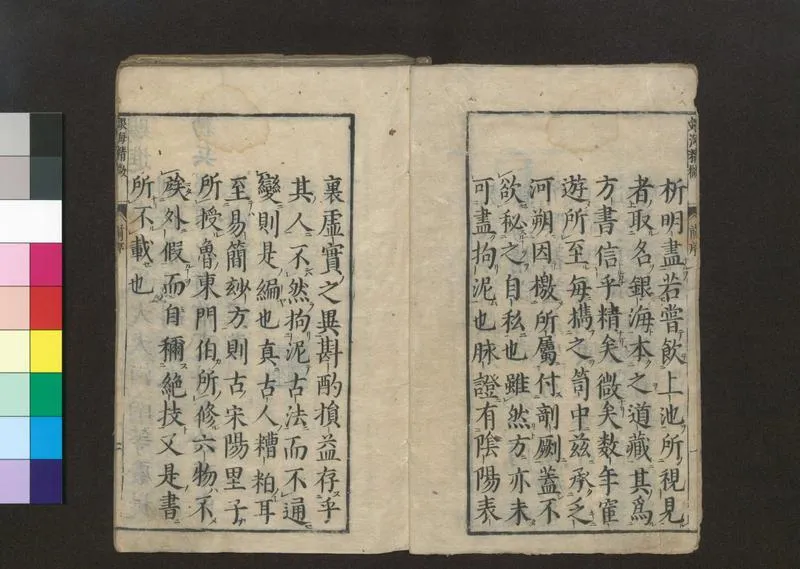 析明盡若嘗飲上池所視見
者取名銀海本之道藏其爲
方書信乎精矣微矣数年宦
遊所至每檇之笥中兹承乏
河朔因檄所屬付剞劂蓋不
欲秘之自私也雖然方亦未
可盡拘泥也脉證有陰陽表
裏虛實之異斟酌損益存乎
其人不然拘泥古法而不通
變則是編也真古人糟粕耳
至易簡玅方則古宋陽里子
所授魯東門伯所修六物不
族外假而自稱絶技又是書
所不載也
銀海精微
前序